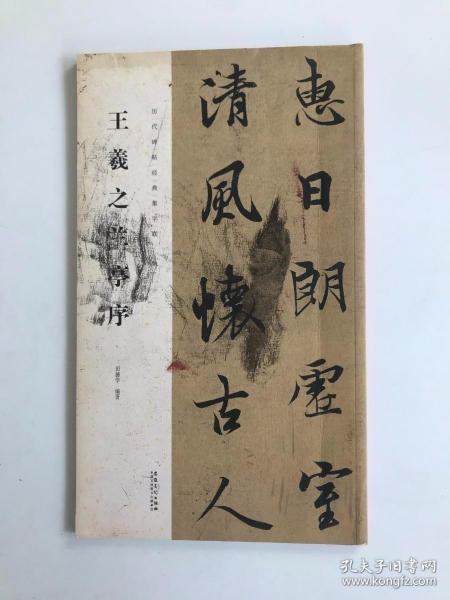 惠日朗虚室
清風懷古人
历代碑帖经典集字
王羲之兰亭序
编著
孔夫子旧书网
www.kongfz.com